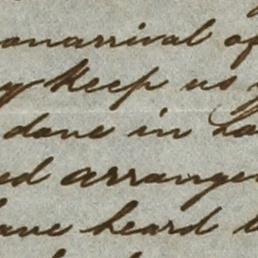 onarrival of
keep us
done in
ed arrange
have heard